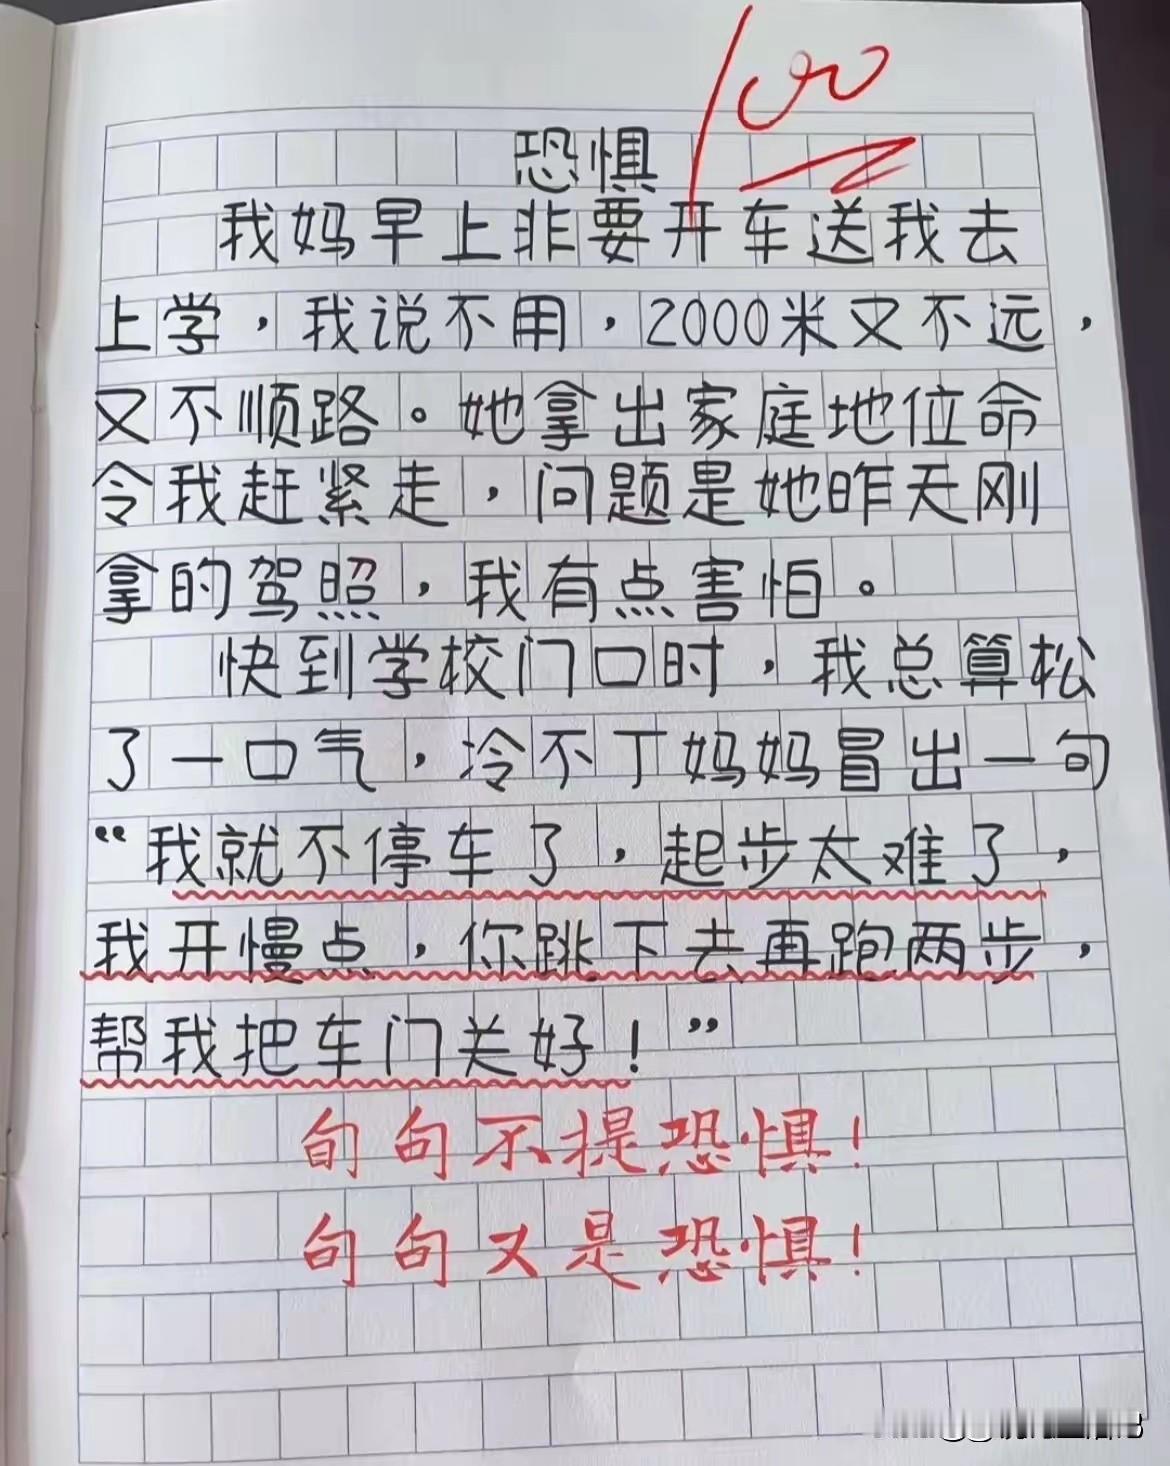 100
恐惧
我妈早上非要开车送我去
上学，我说不用，2000米又不远，
又不顺路。她拿出家庭地位命
令我赶紧走，问题是她昨天刚
拿的驾照，我有点害怕。
快到学校门口时，我总算松
了一口气，冷不丁妈妈冒出一句
“我就不停车了，起步太难了，
我开慢点，你跳下去再跑两步，
帮我把车门关好！”
句句不提恐惧！
句句又是恐惧！